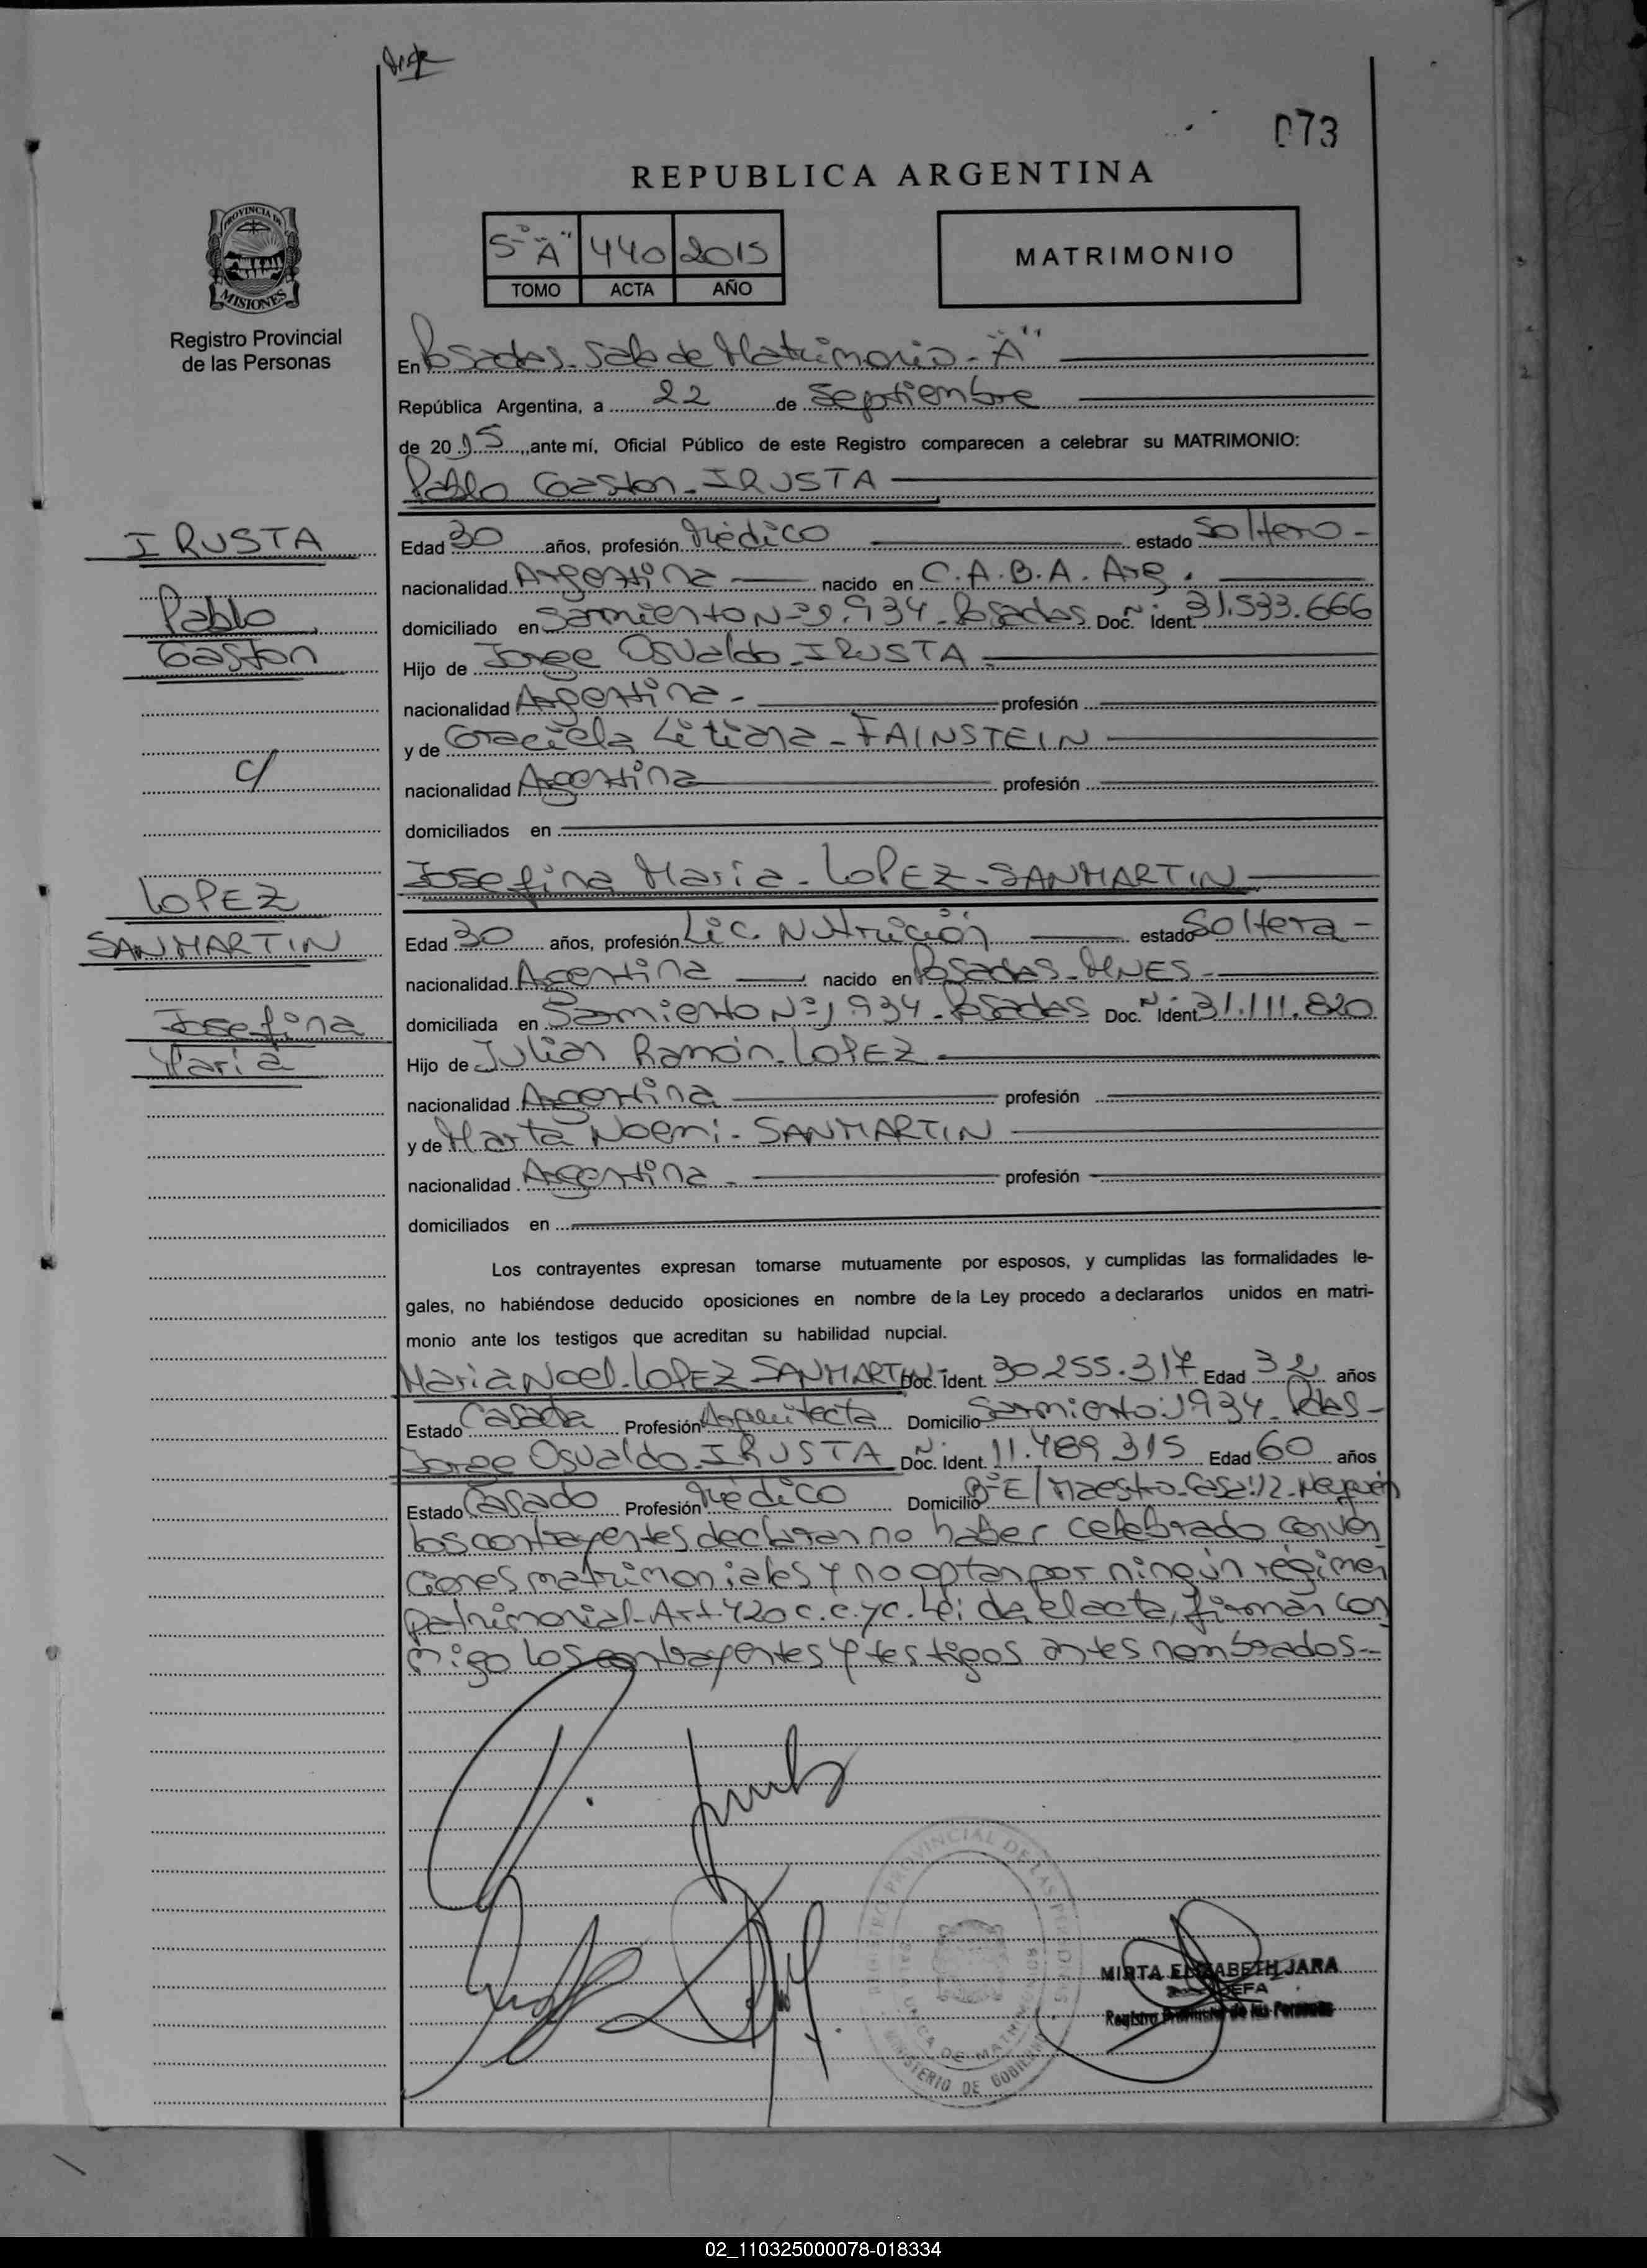 073
REPUBLICA ARGENTINA
5º "A" 440 2015
TOMO ACTA AÑO
MATRIMONIO
PROVINCIA DE
MISIONES
Registro Provincial
de las Personas
En Posadas-Sala de Matrimonio-"A"
República Argentina, a 22 de Septiembre
de 2015, ante mí, Oficial Público de este Registro comparecen a celebrar su MATRIMONIO:
Pablo Gaston-IRUSTA
IRUSTA
Pablo
Gaston
c/
LOPEZ
SANMARTIN
Josefina
María
Edad 30 años, profesión Médico estado Soltero-
nacionalidad Argentina nacido en C.A.B.A. Arg.
domiciliado en Sarmiento Nº1.934-Posadas Doc. Ident. 31.533.666
Hijo de Jorge Osvaldo-IRUSTA-
nacionalidad Argentina- profesión
y de Graciela Litiana-FAINSTEIN
nacionalidad Argentina profesión
domiciliados en
Josefina María-LOPEZ-SANMARTIN
Edad 30 años, profesión Lic. Nutrición estado Soltera-
nacionalidad Argentina nacido en Posadas-MNES-
domiciliada en Sarmiento Nº1.934-Posadas Doc. Ident 31.111.820
Hijo de Julian Ramón-LOPEZ-
nacionalidad Argentina profesión
y de Marta Noemi-SANMARTIN
nacionalidad Argentina- profesión
domiciliados en
Los contrayentes expresan tomarse mutuamente por esposos, y cumplidas las formalidades le-
gales, no habiéndose deducido oposiciones en nombre de la Ley procedo a declararlos unidos en matri-
monio ante los testigos que acreditan su habilidad nupcial.
Maria Noel-LOPEZ SANMARTIN Doc. Ident. 30.255.317 Edad 32 años
Estado Casada Profesión Arquitecta Domicilio Sarmiento:1934-Pdas-
Jorge Osvaldo-IRUSTA Doc. Ident. 11.489.315 Edad 60 años
Estado Casado Profesión Médico Domicilio Bº E/Maestro-Casa:12-Neuquén
los contrayentes declaran no haber celebrado conven
ciones matrimoniales y no optan por ningún régimen
patrimonial-Art.420 c.c.yc. Leída el acta, firman con
migo los contrayentes y testigos antes nombrados--
REGISTRO PROVINCIAL DE LAS PERSONAS
MINISTERIO DE GOBIERNO
MIRTA ELIZABETH JARA
JEFA
Registro Provincial de las Personas
02_110325000078-018334